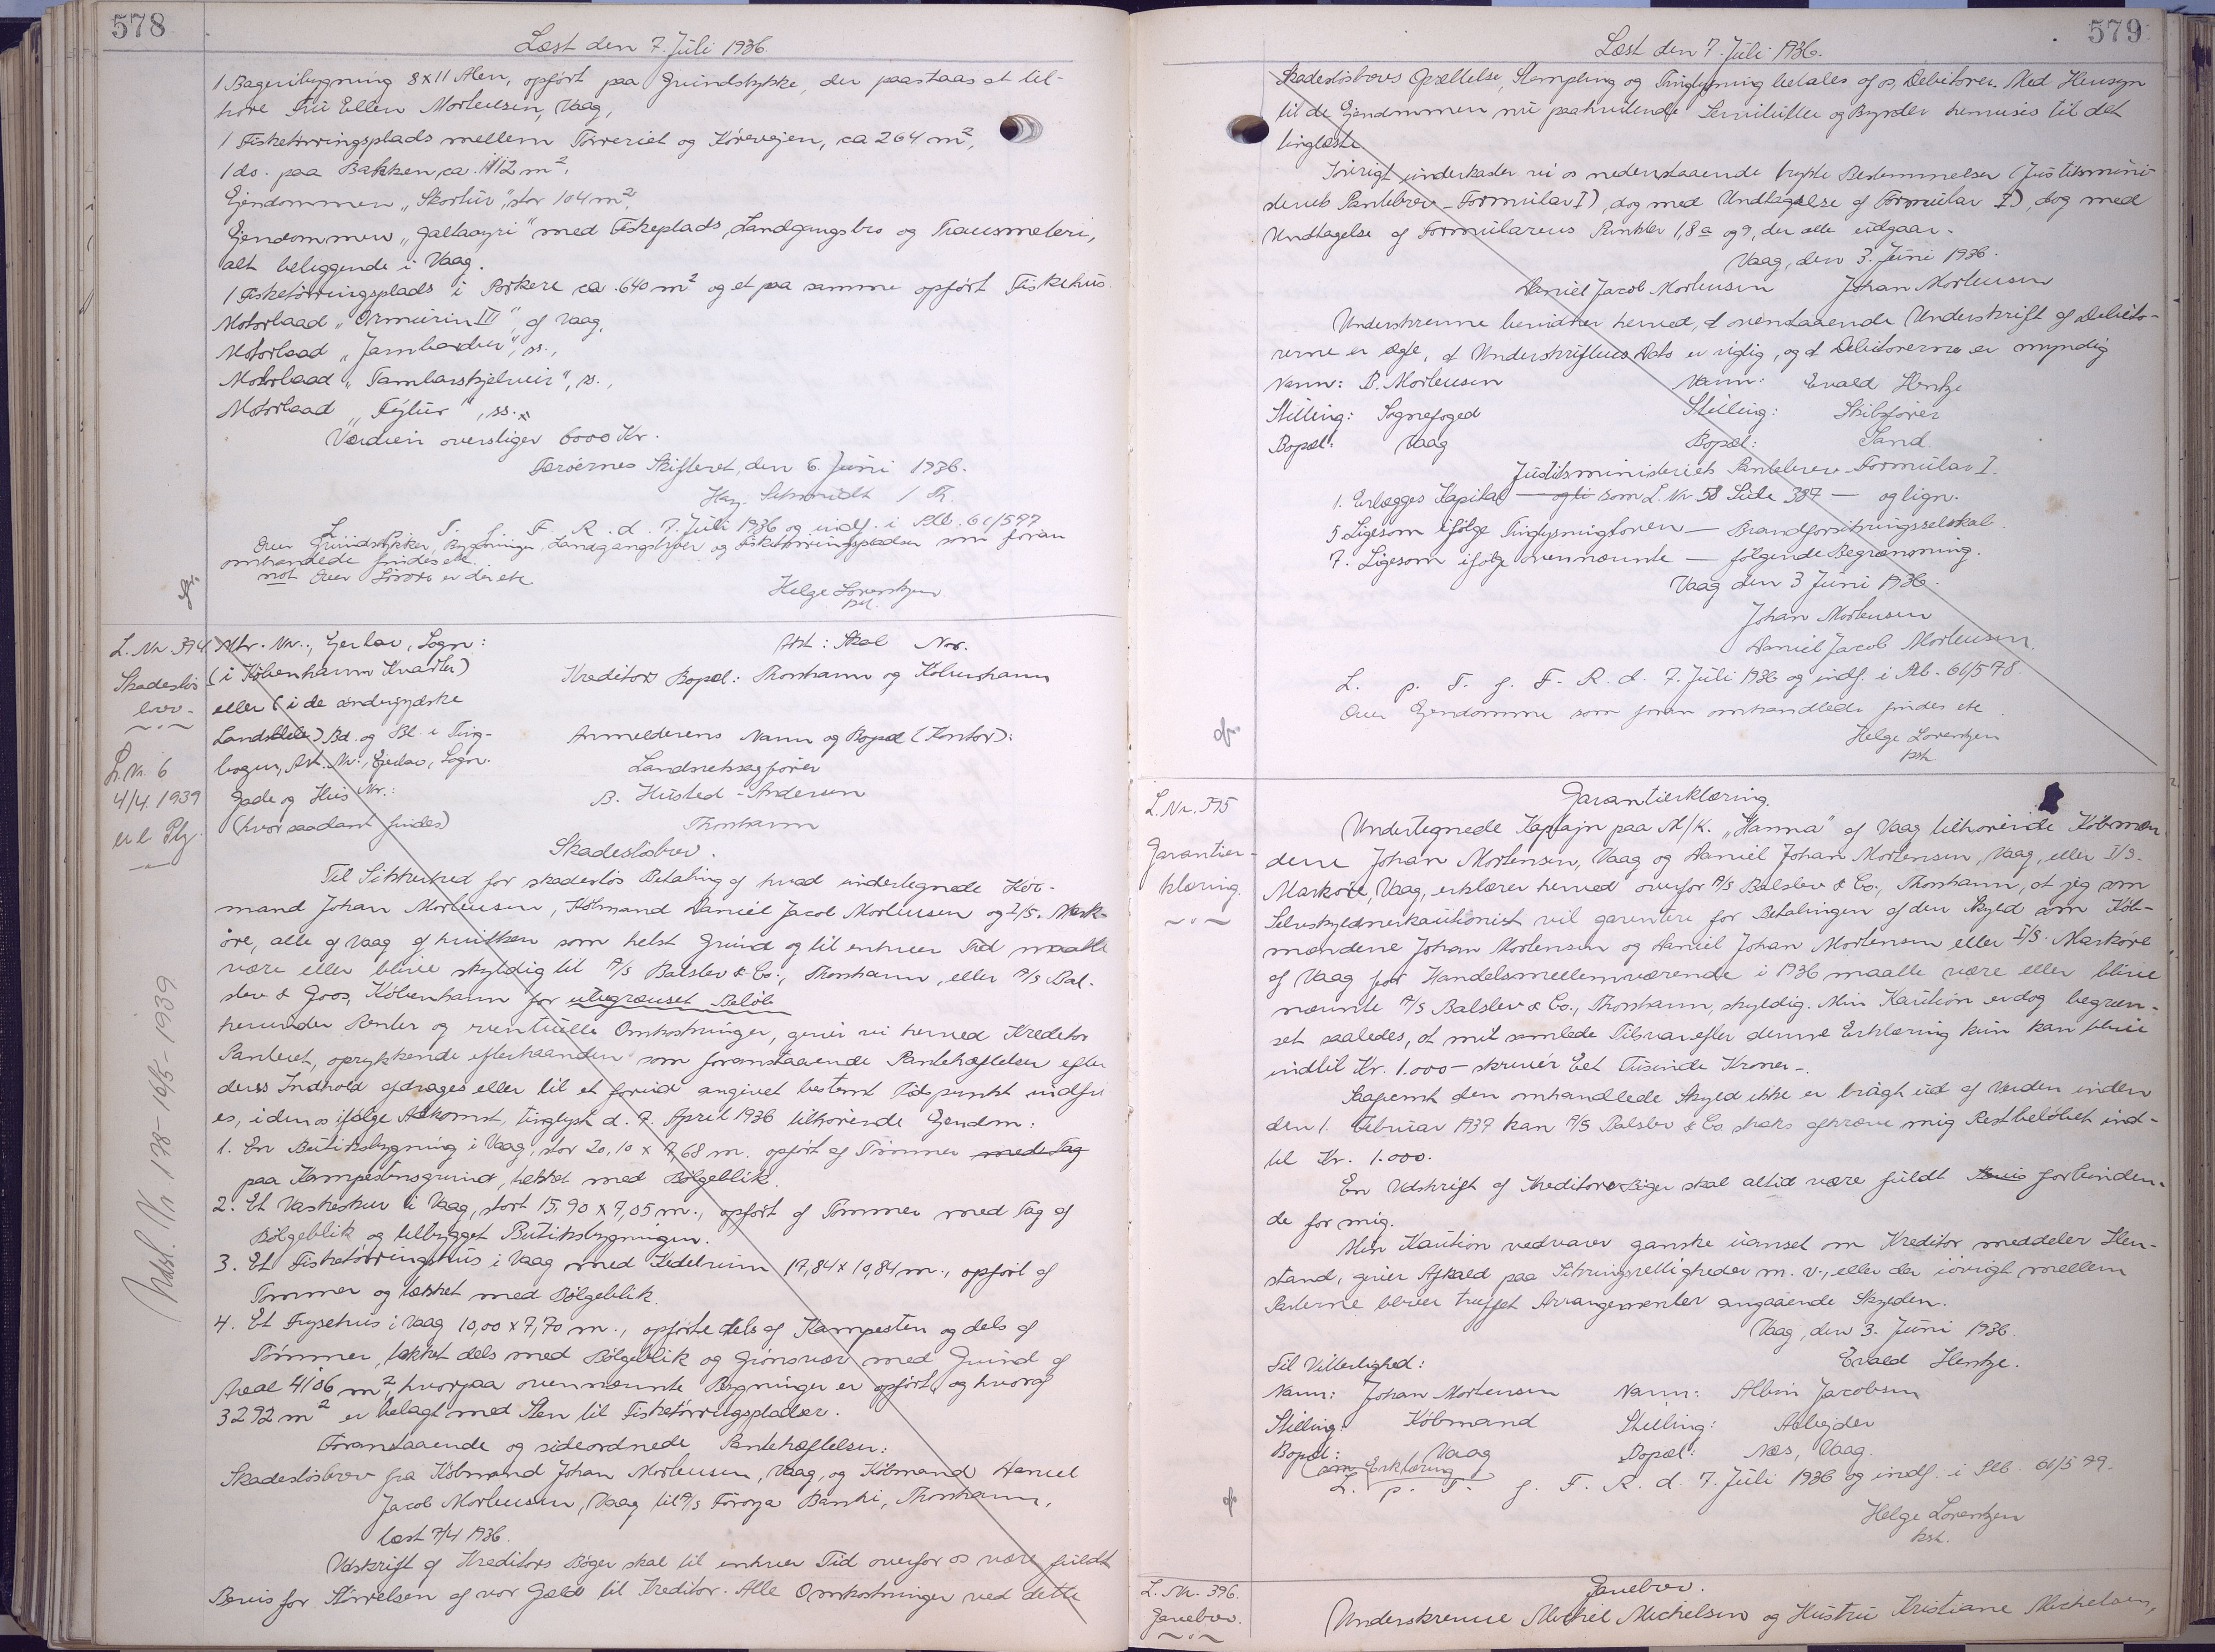 578
Læst den 7. Juli 1936.
1 Bageribygning 8 x 11 Alen, opført paa Grundstykke, der paastaas at til-
høre Fru Ellen Mortensen, Vaag,
1 Fisketørringsplads mellem Tørreriet og Kørevejen, ca 264 m²,
1 do. paa Bakken, ca. 1112 m²,
Ejendommen „Skortur", stor 104 m²,
Ejendommen „Gallaoyri" med Fiskeplads, Landgangsbro og Transmeleri,
alt beliggende i Vaag.
1 Fisketørringsplads i Porkere ca. 640 m² og et paa samme opført Fiskehus.
Motorbaad „Ormurin III", af Vaag,
Motorbaad „Jambardur", ss.,
Motorbaad „Tambarskjelvur", ss.,
Motorbaad „Fýlur", ss.
Værdien overstiger 6000 Kr.
Færøernes Skifteret, den 6. Juni 1936.
Schmidt / Th.
L. T. f. F. R. d. 7. Juli 1936 og indf. i Plb. 61/577
Over Grundstykker, Bygninger, Landgangsbroer og Fisketørringspladser som foran
omhandlede findes ek.
not Over Løsøre er der ek.
Helge Lorentzen
pst.
L. Nr. 394.
Skadesløs
brev.
L. Nr. 6
4/4 1939
er l. Ptg.
Udsl. Nr 138 - 16/5 - 1939
Mtr. Nr., Ejerlav, Sogn:
(i København Kvarter)
eller (i de sønderjydske
Landsdele) Bd. og Bl. i Ting-
bogen, Art. Nr., Ejerlav, Sogn.
Gade og Hus Nr.:
(hvor saadant findes)
Akt: Skab Nr.
Kreditors Bopæl: Thorshavn og København
Anmelderens Navn og Bopæl (Kontor):
Landsretssagfører
B. Husted-Andersen
Thorshavn
Skadesløsbrev.
Til Sikkerhed for skadesløs Betaling af hvad undertegnede Køb-
mand Johan Mortensen, Købmand Daniel Jacob Mortensen og I/S. Mark-
øre, alle af Vaag af hvilken som helst Grund og til enhver Tid maatte
være eller blive skyldig til A/S Balslev & Co., Thorshavn, eller A/S Bal-
slev & Goos, København for ubegrænset Beløb
herunder Renter og eventuelle Omkostninger, giver vi herved Kreditor
Panteret, oprykkende efterhaanden som foranstaaende Pantehæftelser efter
deres Indhold afdrages eller til et forud angivet bestemt Tidspunkt indfri
es, i den os ifølge Adkomst, tinglyst d. 7. April 1936 tilhørende Ejendom:
1. En Butiksbygning i Vaag, stor 20,10 x 7,68 m. opført af Tømmer med Tag
paa Kampestensgrund, tækket med Bølgeblik.
2. Et Vaskeskur i Vaag, stort 15,90 x 7,05 m., opført af Tømmer med Tag af
Bølgeblik og tilbygget Butiksbygningen.
3. Et Fisketørringshus i Vaag med Kedelrum 17,84 x 10,84 m., opført af
Tømmer og tækket med Bølgeblik.
4. Et Frysehus i Vaag 10,00 x 7,70 m., opførte dels af Kampesten og dels af
Tømmer, tækket dels med Bølgeblik og Grønsvær med Grund af
Areal 4106 m², hvorpaa ovennævnte Bygninger er opført, og hvoraf
3292 m² er belagt med Sten til Fisketørringspladser.
Foranstaaende og sideordnede Pantehæftelser:
Skadesløsbrev fra Købmand Johan Mortensen, Vaag, og Købmand Daniel
Jacob Mortensen, Vaag til A/S Føroya Banki, Thorshavn,
læst 7/4 1936.
Udskrift af Kreditors Bøger skal til enhver Tid overfor os være fuldt
Bevis for Størrelsen af vor Gæld til Kreditor. Alle Omkostninger ved dette
579
Læst den 7. Juli 1936.
Skadesløsbrevs Oprettelse, Stempling og Tinglysning betales af os, Debitorer. Med Hensyn
til de Ejendommen nu paahvilende Servitutter og Byrder henvises til det
tinglæste
Iøvrigt underkaster vi os nedenstaaende trykte Bestemmelser (Justitsmini-
steriets Pantebrev-Formular I), dog med Undtagelse af Formular I), dog med
Undtagelse af Formularens Punkter 1, 8 a og 9, der alle udgaar.
Vaag, den 3. Juni 1936.
Daniel Jacob Mortensen Johan Mortensen
Underskrevne bevidner herved, at ovenstaaende Underskrift af Debito-
rerne er ægte, at Underskriftens Dato er rigtig, og at Debitorerne er myndig
Navn: B. Mortensen Navn: Evald Hentze
Stilling: Sognefoged Stilling: Skibsfører
Bopæl: Vaag Bopæl: Sand.
Justitsministeriets Pantebrevs-Formular I.
1. Erlægges Kapital — og li som L. Nr 58 Side 387 — og lign.
5 Ligesom ifølge Tinglysningsloven — Brandforsikringsselskab.
7. Ligesom ifølge ovennævnte — følgende Begrænsning.
Vaag den 3 Juni 1936.
Johan Mortensen
Daniel Jacob Mortensen.
L. p. T. f. F. R. d. 7. Juli 1936 og indf. i Plb. 61/578.
Over Ejendomme som foran omhandlede findes ek
Helge Lorentzen
pst.
L. Nr. 395
Garantier-
klæring.
Garantierklæring.
Undertegnede Kaptajn paa M/K. „Hanna" af Vaag tilhørende Købmæn
dene Johan Mortensen, Vaag og Daniel Johan Mortensen, Vaag, eller I/S.
Markøre, Vaag, erklærer herved overfor A/S Balslev & Co., Thorshavn, at jeg som
Selvskyldnerkautionist vil garantere for Betalingen af den Skyld som Køb-
mændene Johan Mortensen og Daniel Johan Mortensen eller I/S. Markøre
af Vaag for Handelsmellemværende i 1936 maatte være eller blive
nævnte A/S Balslev & Co., Thorshavn, skyldig. Min Kaution er dog begræn-
set saaledes, at mit samlede Tilsvar efter denne Erklæring kun kan blive
indtil Kr. 1.000 - skriver Eet Tusinde Kroner -.
Saafremt den omhandlede Skyld ikke er bragt ud af Verden inden
den 1. Februar 1937 kan A/S Balslev & Co. straks afkræve mig Restbeløbet ind-
til Kr. 1.000.
En Udskrift af Kreditors Bøger skal altid være fuldt Bevis forbinden-
de for mig.
Min Kaution vedvarer ganske uanset om Kreditor meddeler Hen-
stand, giver Afkald paa Sikringsrettigheder m. v., eller der iøvrigt mellem
Parterne bliver truffet Arrangementer angaaende Skylden.
Vaag, den 3. Juni 1936.
Evald Hentze.
Til Vitterlighed:
Navn: Johan Mortensen Navn: Albin Jacobsen
Stilling: Købmand Stilling: Arbejder
Bopæl: Vaag Bopæl: Næs, Vaag.
(som Erklæring)
L. p. T. f. F. R. d. 7. Juli 1936 og indf. i Plb. 61/579.
Helge Lorentzen
kst.
L. Nr. 396.
Gavebrev.
Gavebrev.
Underskrevne Michel Michelsen og Hustru Kristiane Michelsen,